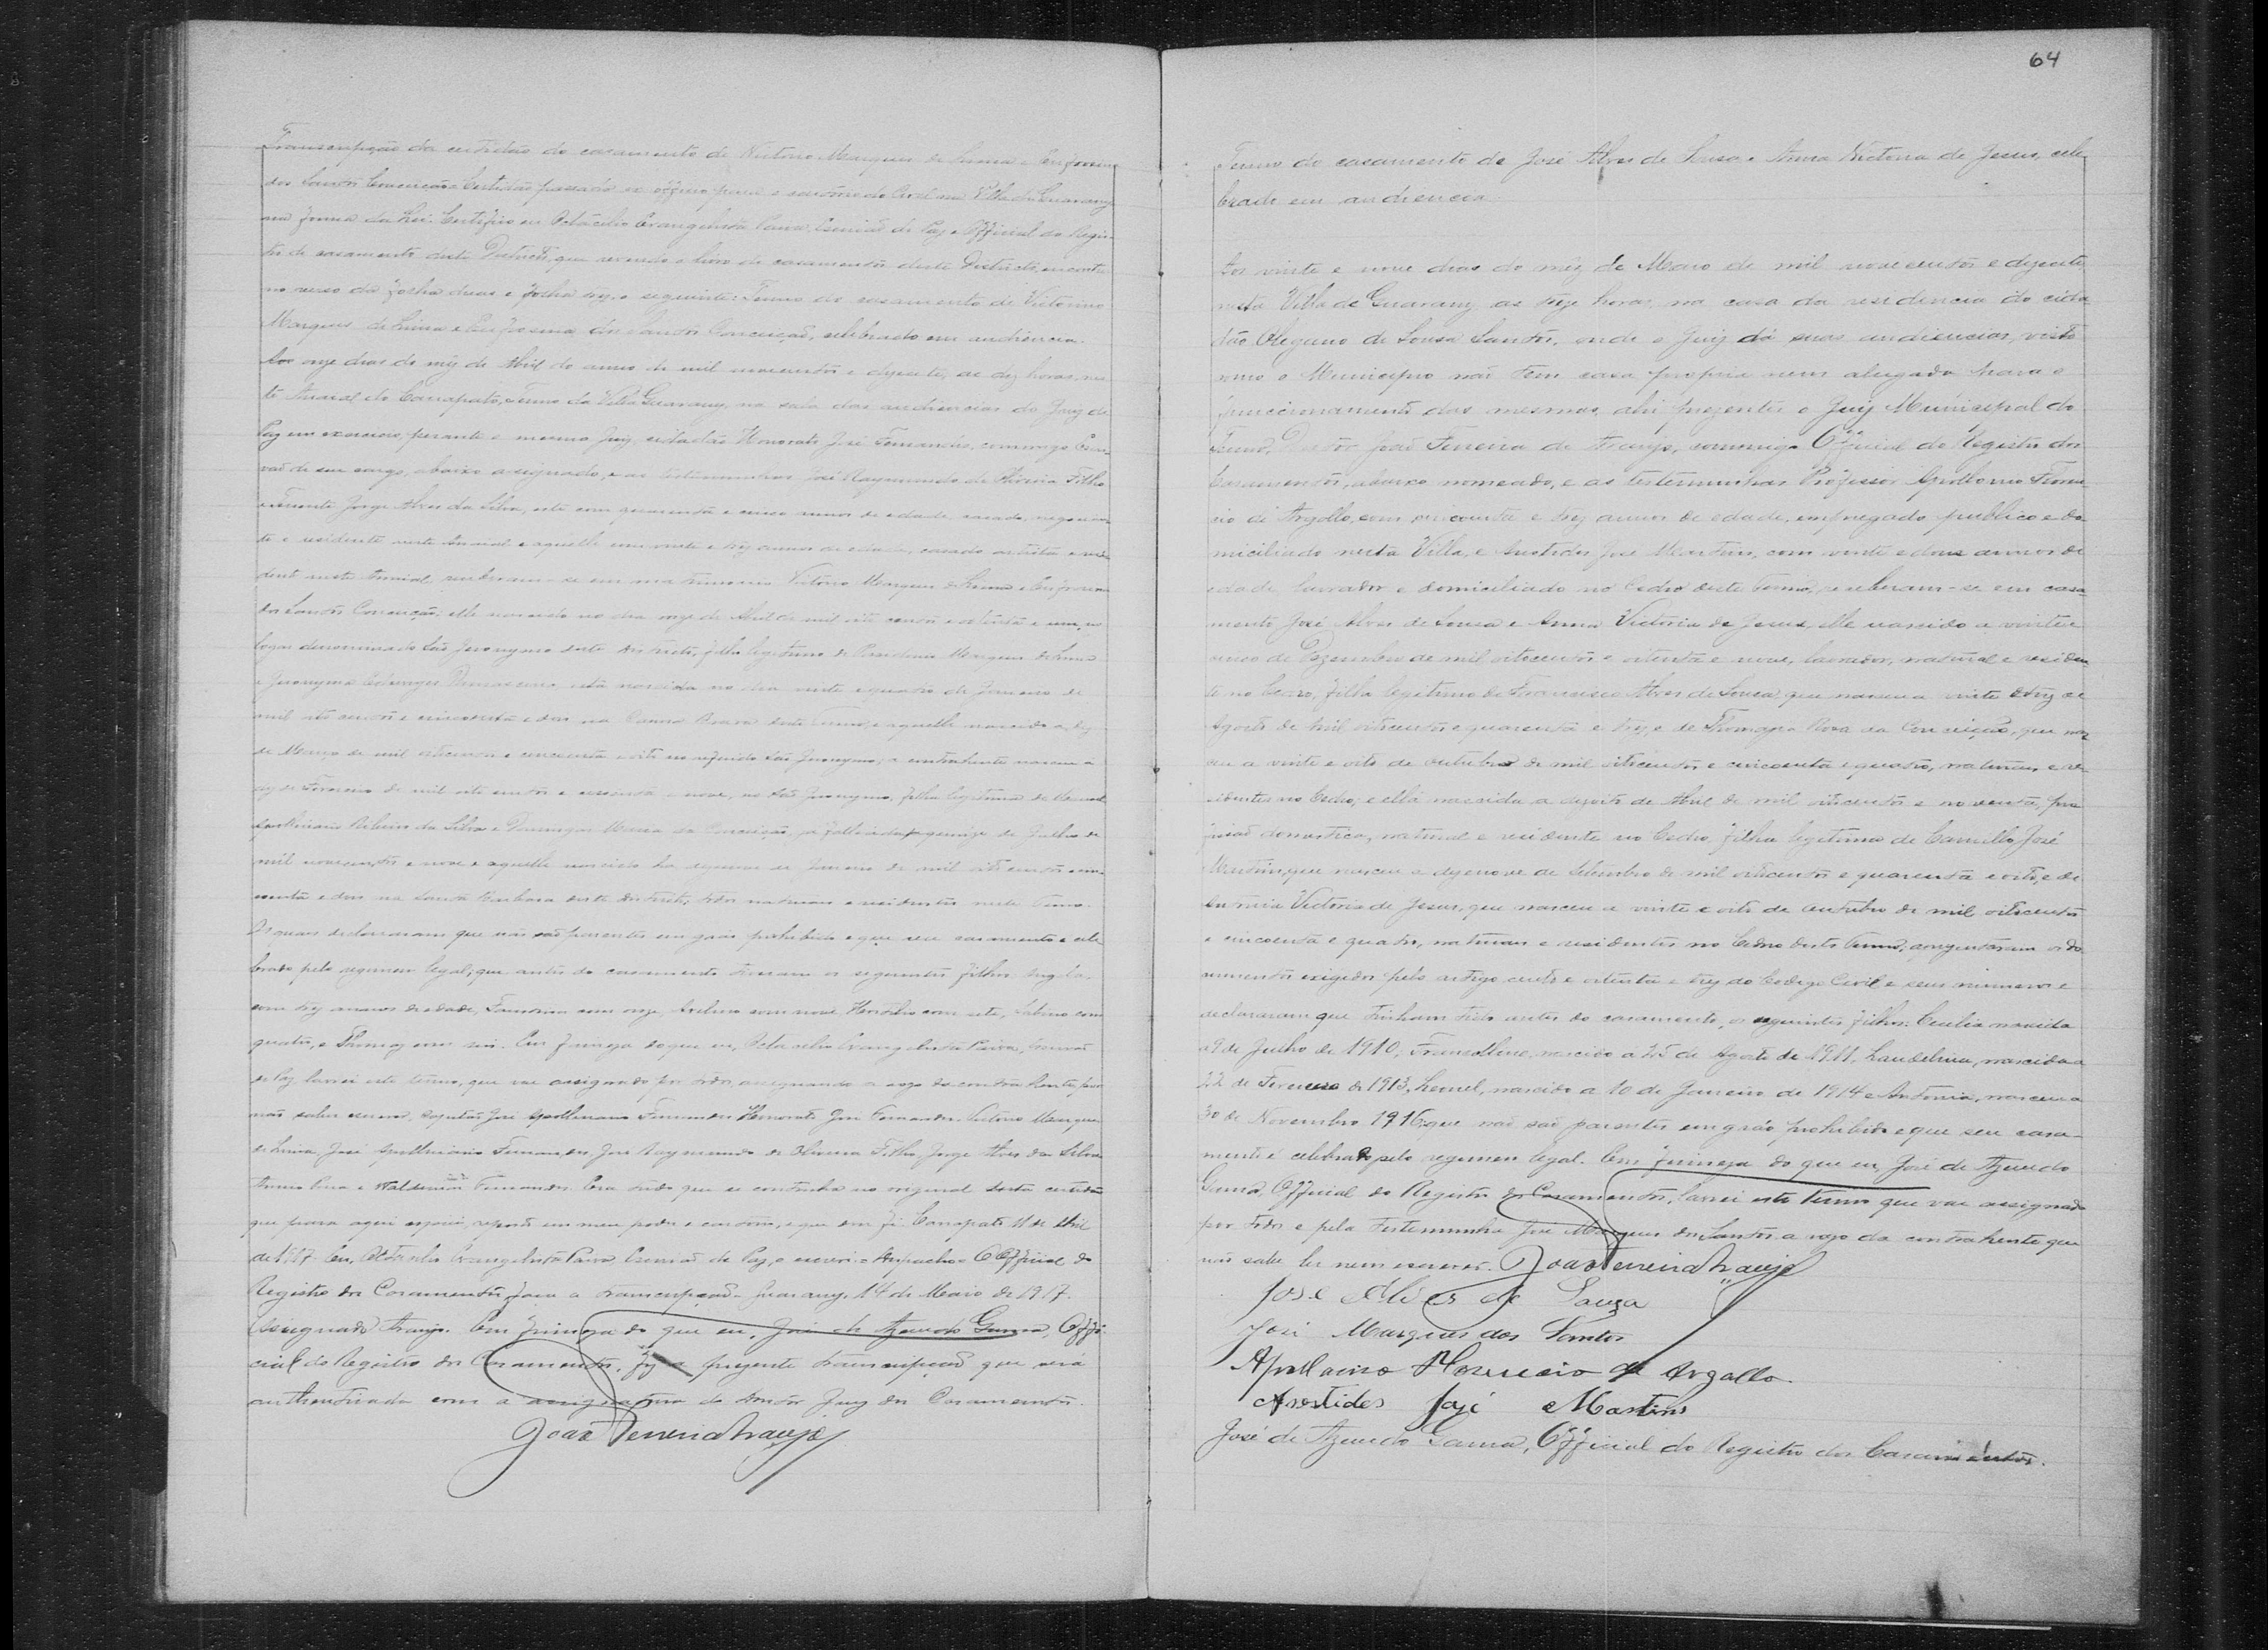 Transcripção da certidão do casamento de Victorio Marques de Lima e Eufrosina
dos Santos Conceição. Certidão passada ex officio para o cartorio do Civil na Villa de Guarany
na forma da Lei. Certifico eu Octacilio Evangelista Paiva, Escrivão de Paz e Official do Regis-
tro de casamento deste Districto, que revendo o livro de casamentos deste Districto, encontrei
no verso da folha duas e folha trez, o seguinte: Termo do casamento de Victorino
Marques de Lima e Eufrosina dos Santos Conceição, celebrado em audiencia.
Aos onze dias do mêz de Abril do anno de mil novecentos e dezesete, as dez horas, nes-
te Arraial do Carrapato, Termo da Villa Guarany, na sala das audiencias do Juiz de
Paz em exercicio, perante o mesmo Juiz, cidadão Honorato José Fernandes, commigo Escri-
vão de seu cargo, abaixo assignado, e as testemunhas José Raymundo de Oliveira Filho
e Tenente Jorge Alves da Silva, este com quarenta e cinco annos de edade, casado, negocian-
te e residente neste Arraial e aquelle com vinte e trez annos de edade, casado, artista e resi-
dente neste Arraial receberam-se em matrimonio Victorio Marques de Lima e Eufrosina
dos Santos Conceição; elle nascido no dia onze de Abril de mil oito centos e oitenta e um, no
logar denominado São Jeronymo deste districto, filho legitimo de Marques de Lima
e Jeronyma esta nascida no dia vinte e quatro de Janeiro de
mil oito centos e cincoenta e dois na deste Termo, e aquelle nascido a dez
de Março de mil oitocentos e cincoenta e oito no referido São Jeronymo; a contrahente nasceu a
dez de Fevereiro de mil oito centos e e nove, no São Jeronymo, filha legitima de Manoel
Ribeiro da Silva e Maria da Conceição, já fallecida a quinze de Julho de
mil novecentos e nove e aquelle nascido ha de Janeiro de mil oito centos cin-
coenta e dois na Santa Barbara deste districto, todos naturaes e residentes neste Termo.
Os quaes declararam que não são parentes em gráo prohibido e que seu casamento é cele-
brado pelo regimen legal; que antes do casamento tiveram os seguintes filhos: Angela,
com trez annos de edade, com onze, Avelino com nove, Herotilio com sete, Sabino com
quatro, e Thomaz com um. Em firmeza do que eu, Octacilio Evangelista Paiva, Escrivão
de Paz lavrei este termo, que vae assignado por todos, assignando a rogo da contrahente, por
não saber escrever, Capitão José Apollinario Fernandes. Honorato José Fernandes. Victorio Marques
de Lima, José Apollinario Fernandes, José Raymundo de Oliveira Filho, Jorge Alves da Silva
e Waldemar Fernandes. Era tudo que se continha no original desta certidão
que para aqui copiei, reporto em meu poder e cartorio, e que dou fé. Carrapato 11 de Abril
de 1917. Eu, Octacilio Evangelista Paiva Escrivão de Paz, o escrevi. Despacho: O Official do
Registro dos Casamentos, faça a transcripção. Guarany, 14 de Maio de 1917.
(assignado) Araujo. Em firmeza do que eu, José de Azevedo Gama, Offi-
cial do Registro dos Casamentos, fiz a prezente transcripção que será
authenticada com a assignatura do doutor Juiz dos Casamentos.
João Ferreira Araujo
64
Termo do casamento de José Alves de Sousa e Anna Victoria de Jesus, cele-
brado em audiencia.
Aos vinte e nove dias do mêz de Maio de mil novecentos e dezesete,
nesta Villa de Guarany, as treze horas, na casa da residencia do cida-
dão Olegario de Sousa Santos, onde o Juiz dá suas audiencias, visto
como o Municipio não tem casa propria nem alugada para o
funccionamento das mesmas, ahi prezentes o Juiz Municipal do
Termo, Doutor João Ferreira de Araujo, commigo Official do Registro dos
Casamentos, abaixo nomeado, e as testemunhas Professor Apollonio Floren-
cio de Argollo, com cincoenta e trez annos de edade, empregado publico e do-
miciliado nesta Villa, e Aristides José Martins, com vinte e dous annos de
edade, lavrador e domiciliado no Cedro deste Termo, receberam-se em casa-
mento José Alves de Sousa e Anna Victoria de Jesus, elle nascido a vinte e
cinco de Dezembro de mil oitocentos e oitenta e nove, lavrador, natural e residen-
te no Cedro, filho legitimo de Francisco Alves de Sousa, que nasceu a vinte e trez de
Agosto de mil oitocentos e quarenta e trez, e de Thomazia Rosa da Conceição, que nas-
ceu a vinte e oito de outubro de mil oitocentos e cincoenta e quatro, naturaes e re-
sidentes no Cedro, e ella nascida a dezoito de Abril de mil oitocentos e noventa, pro-
fissão domestica, natural e residente no Cedro, filha legitima de Camillo José
Martins, que nasceu a dezenove de Setembro de mil oitocentos e quarenta e oito, e de
Antonia Victoria de Jesus, que nasceu a vinte e oito de outubro de mil oitocentos
e cincoenta e quatro, naturaes e residentes no Cedro deste Termo; aprezentaram os do-
cumentos exigidos pelo artigo cento e oitenta e trez do Codigo Civil e seus numeros e
declararam que tinham tido antes do casamento, os seguintes filhos: Cecilia nascida
a 9 de Julho de 1910, Francellino, nascido a 25 de Agosto de 1911, Laudelina, nascida a
22 de Fevereiro de 1913, Leonel, nascido a 10 de Janeiro de 1914 e Antonia, nasceu a
30 de Novembro 1916; que não são parentes em gráo prohibido e que seu casa-
mento é celebrado pelo regimen legal. Em firmeza do que eu, José de Azevedo
Gama, Official do Registro dos Casamentos, lavrei este termo que vae assignado
por todos e pela testemunha José Marques dos Santos a rogo da contrahente que
não sabe ler nem escrever. João Ferreira Araujo
José Alves de Souza
José Marques dos Santos
Apollonio Florencio de Argollo.
Arestides José Martins
José de Azevedo Gama, Official do Registro dos Casamentos.